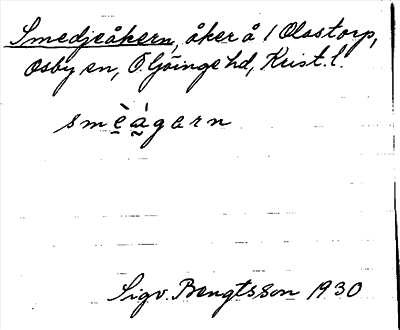 Smedjeåkern, åker å 1 Olastorp,
Osby sn, Ö. Göinge hd, Krist. l.
smè̠à̰garn
Sigv. Bengtsson 1930